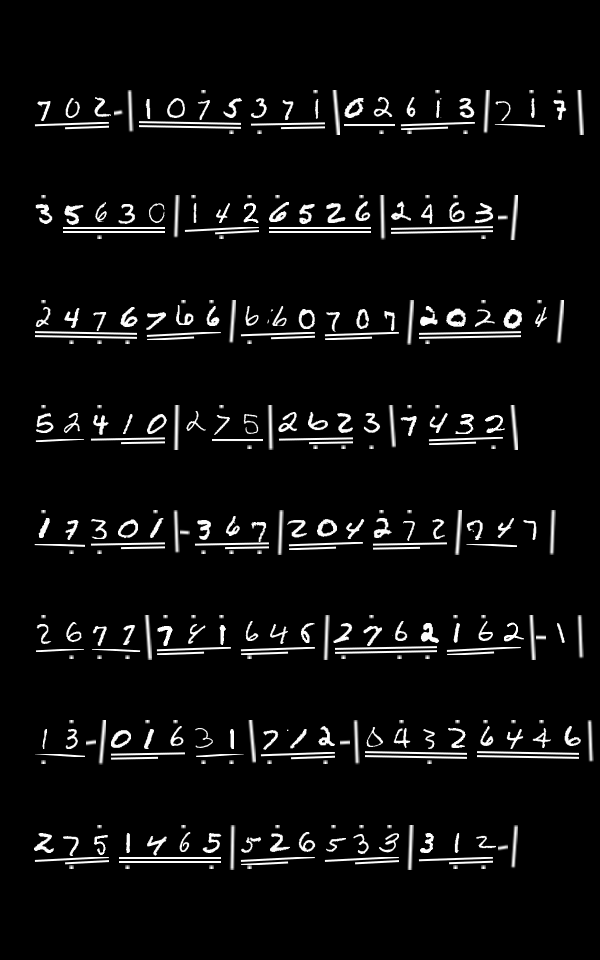 702-|1075371|02613|717
35630|1426526|2463-|
2476766|660707|20204
52410|275|2623|7432
17301|-367|204272|747
2677|741646|2762162|-1|
13-|01631|712-|04326446|
2751465|526533|312-|